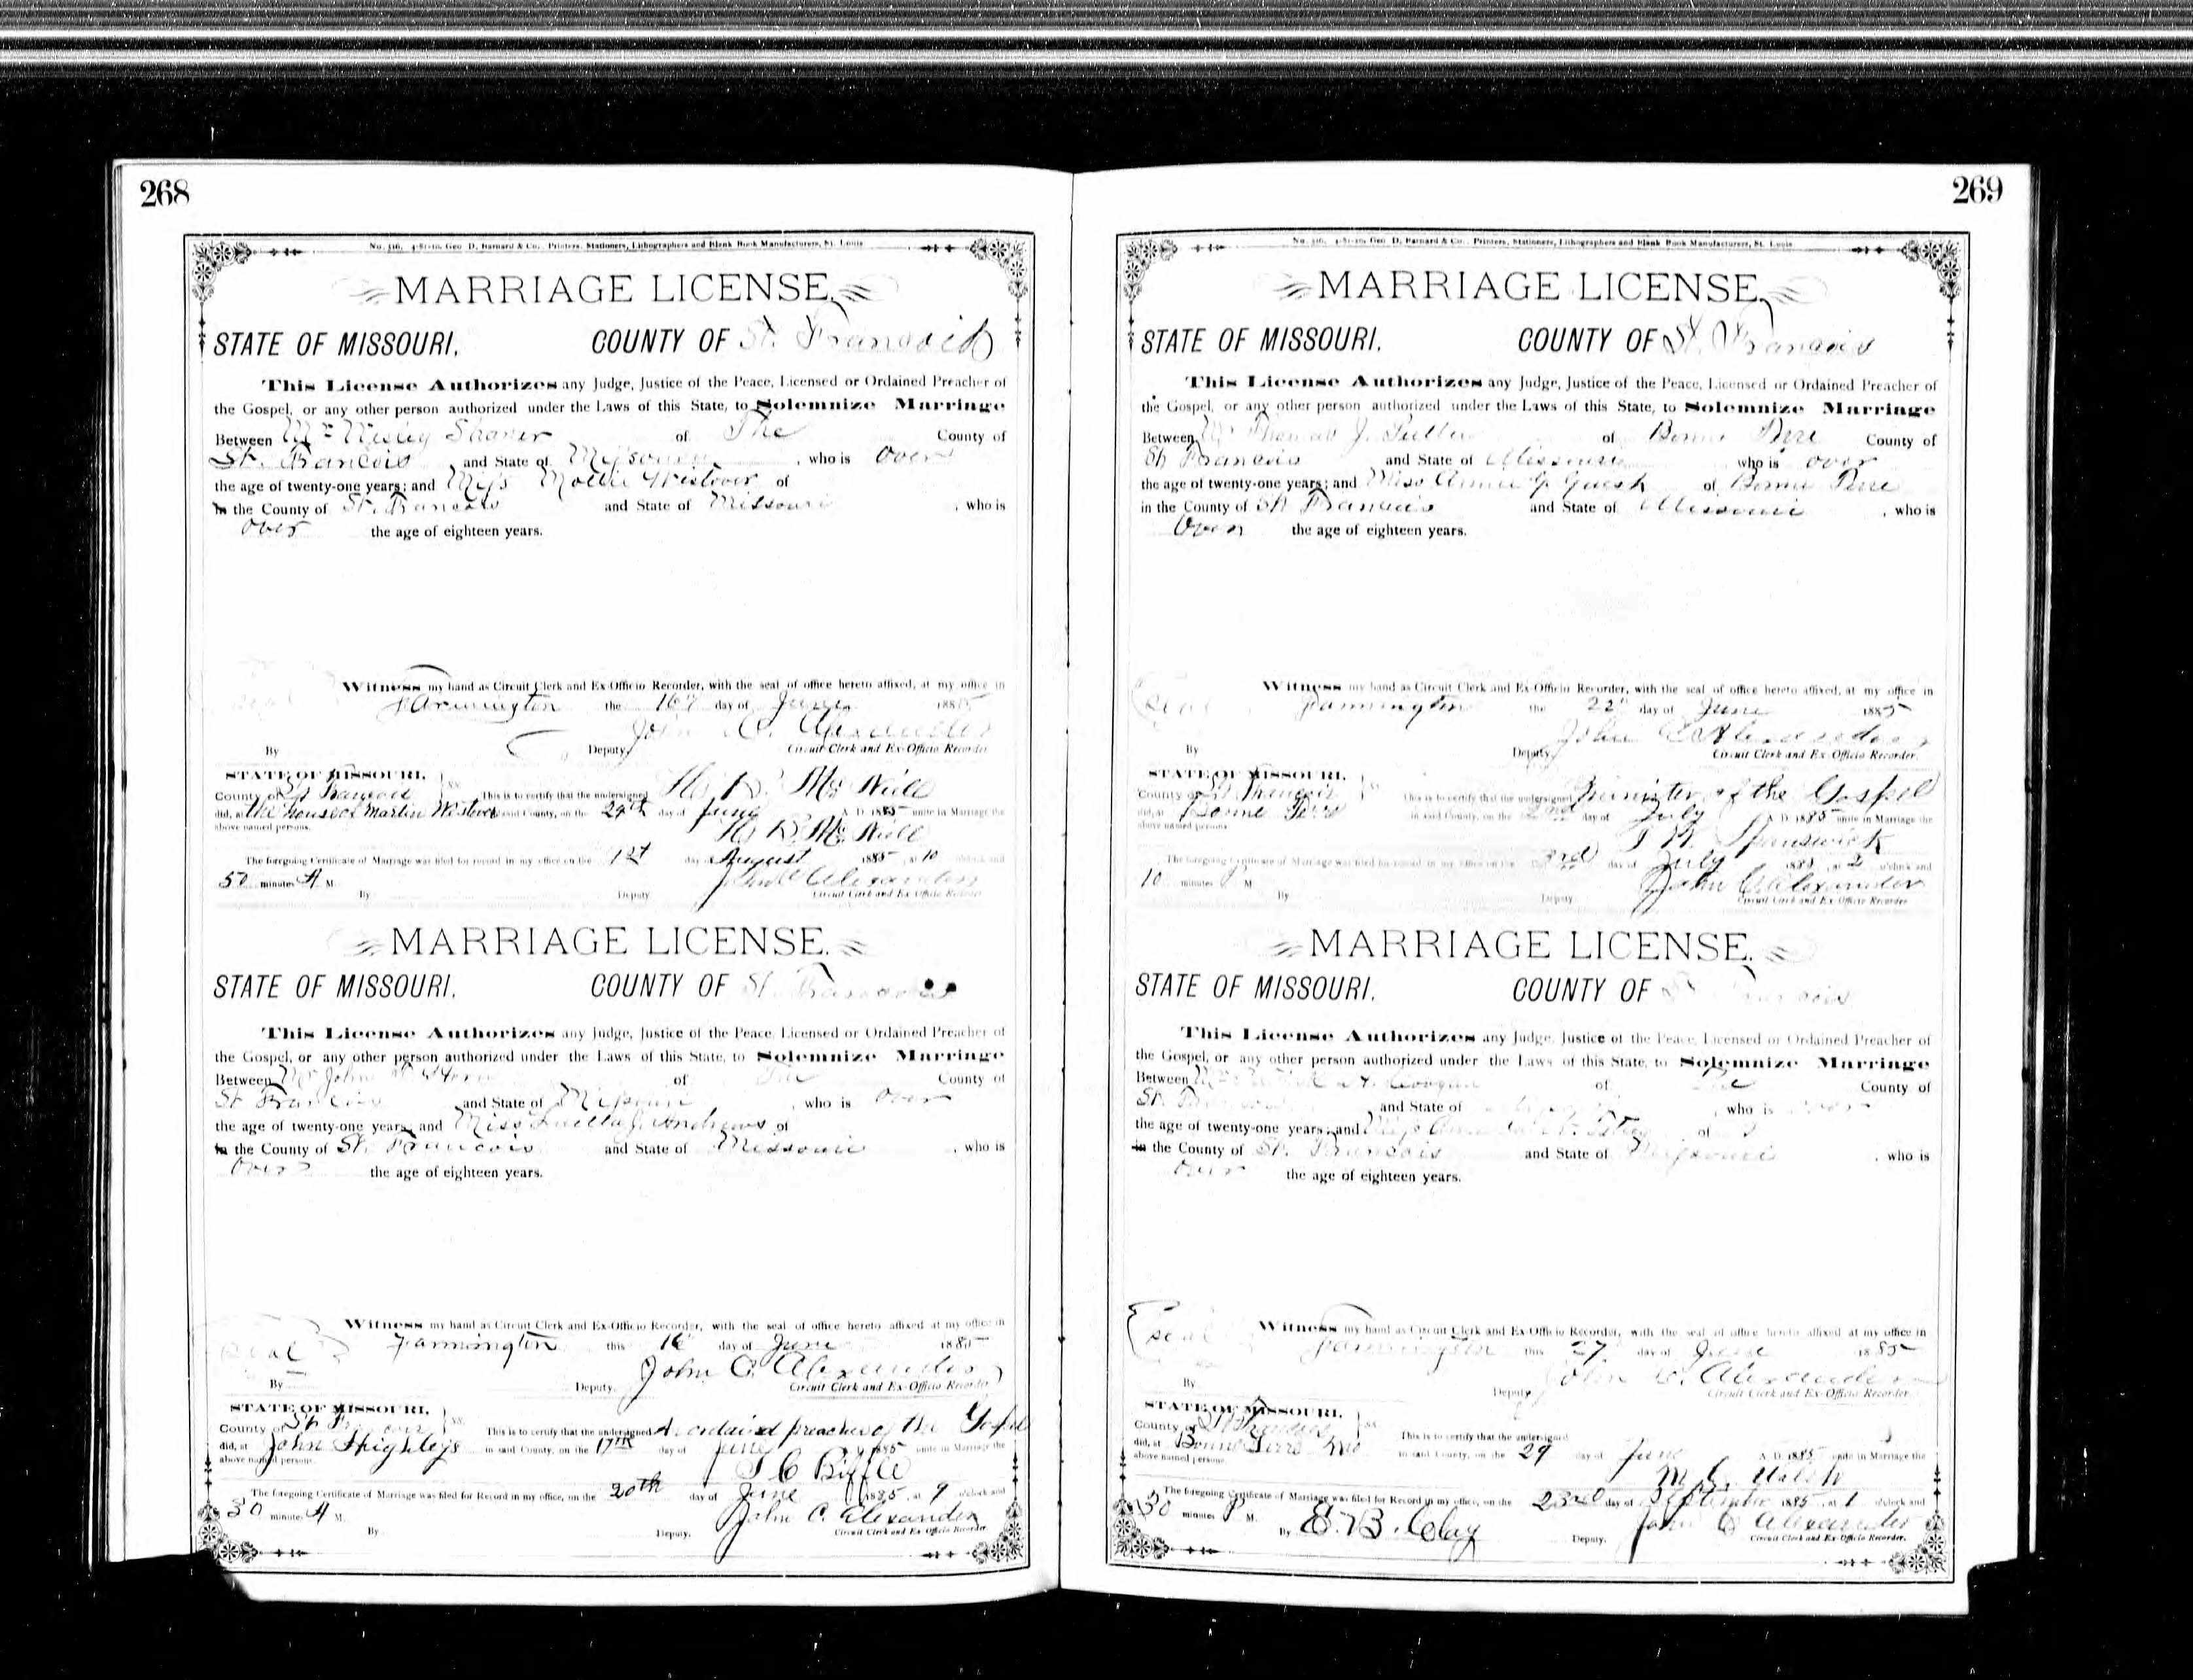 268
No. 516, 4-81-10. Geo D. Barnard & Co., Printers, Stationers, Lithographers and Blank Book Manufacturers, St. Louis
MARRIAGE LICENSE.
STATE OF MISSOURI. COUNTY OF St. Francois
This License Authorizes any Judge, Justice of the Peace, Licensed or Ordained Preacher of
the Gospel, or any other person authorized under the Laws of this State, to Solemnize Marriage
Between Mr Wesley Sharer of The County of
St. Francois and State of Missouri, who is over
the age of twenty-one years; and Miss Mollie Westover of
in the County of St. Francois and State of Missouri, who is
over the age of eighteen years.
Witness my hand as Circuit Clerk and Ex-Officio Recorder, with the seal of office hereto affixed, at my office in
Seal Farmington the 16th day of June 1885
John C. Alexander
By Deputy. Circuit Clerk and Ex-Officio Recorder
STATE OF MISSOURI, ss.
County of St Francois This is to certify that the undersigned
did, at the house of Martin Westover in said County, on the 24th day of June A D 1885 unite in Marriage the
above named persons.
The foregoing Certificate of Marriage was filed for record in my office on the 1st day of August 1885, at 10 o'clock and
50 minutes A M. John C Alexander
By Deputy Circuit Clerk and Ex-Officio Recorder
MARRIAGE LICENSE.
STATE OF MISSOURI. COUNTY OF St. Francois
This License Authorizes any Judge, Justice of the Peace, Licensed or Ordained Preacher of
the Gospel, or any other person authorized under the Laws of this State, to Solemnize Marriage
Between Mr John of The County of
St Francois and State of Missouri, who is over
the age of twenty-one years; and Miss Luella J. Andrews of
in the County of St. Francois and State of Missouri, who is
over the age of eighteen years.
Witness my hand as Circuit Clerk and Ex-Officio Recorder, with the seal of office hereto affixed at my office in
Seal Farmington this 16 day of June 1885
John C. Alexander
By Deputy. Circuit Clerk and Ex-Officio Recorder
STATE OF MISSOURI, ss.
County of St Francois This is to certify that the undersigned A ordained preacher of the Gospel
did, at John Highley's in said County, on the 17th day of June 1885 unite in Marriage the
above named persons.
The foregoing Certificate of Marriage was filed for Record in my office, on the 20th day of June 1885, at 9 o'clock and
30 minutes A M. John C. Alexander
By Deputy. Circuit Clerk and Ex Officio Recorder
269
No. 516, 4-81-10. Geo D. Barnard & Co., Printers, Stationers, Lithographers and Blank Book Manufacturers, St. Louis
MARRIAGE LICENSE.
STATE OF MISSOURI. COUNTY OF St. Francois
This License Authorizes any Judge, Justice of the Peace, Licensed or Ordained Preacher of
the Gospel, or any other person authorized under the Laws of this State, to Solemnize Marriage
Between Mr Thomas J. of Bonne Terre County of
St Francois and State of Missouri who is over
the age of twenty-one years; and Miss of Bonne Terre
in the County of St Francois and State of Missouri, who is
Over the age of eighteen years.
Witness my hand as Circuit Clerk and Ex-Officio Recorder, with the seal of office hereto affixed, at my office in
Seal Farmington the 22d day of June 1885
John C Alexander
By Deputy. Circuit Clerk and Ex-Officio Recorder.
STATE OF MISSOURI, ss
County of St Francois This is to certify that the undersigned Minister of the Gospel
did, at Bonne Terre in said County, on the 2nd day of July A D 1885 unite in Marriage the
above named persons
The foregoing Certificate of Marriage was filed for record in my office on the 3rd day of July 1885 at 2 o'clock and
10 minutes P M. John C Alexander
By Deputy. Circuit Clerk and Ex-Officio Recorder
MARRIAGE LICENSE.
STATE OF MISSOURI. COUNTY OF St Francois
This License Authorizes any Judge, Justice of the Peace, Licensed or Ordained Preacher of
the Gospel, or any other person authorized under the Laws of this State, to Solemnize Marriage
Between Mr of The County of
St. Francois and State of, who is over
the age of twenty-one years; and Miss of
in the County of St. Francois and State of Missouri, who is
over the age of eighteen years.
Witness my hand as Circuit Clerk and Ex-Officio Recorder, with the seal of office hereto affixed at my office in
Seal Farmington this 27 day of June 1885
John C. Alexander
By Deputy Circuit Clerk and Ex-Officio Recorder.
STATE OF MISSOURI, ss.
County of St Francois This is to certify that the undersigned
did, at Bonne Terre Mo in said County, on the 29 day of June A D 1885 unite in Marriage the
above named persons.
The foregoing Certificate of Marriage was filed for Record in my office, on the 23rd day of September 1885, at 1 o'clock and
30 minutes P M. John C Alexander
By E. B. Clay Deputy. Circuit Clerk and Ex-Officio Recorder.